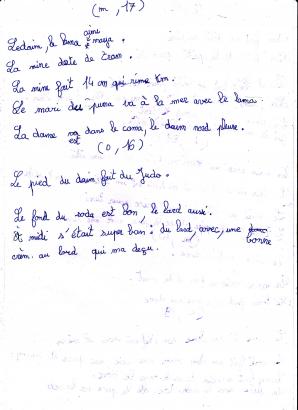 (m, 17)
Ledaim, le lama ami
naya.
La mine date de Tram.
La mine fait 14 cm qui rime Km.
Le mari du puma va à la mer avec le lama.
La dame est dans le coma, le daim nord pleure.
(0, 16)
Le pied du daim fait du Judo.
Le fond du soda est bon, le lard aussi.
A midi s'était super bon : du lard, avec, une bonne
crèm. au bord qui ma deçu.